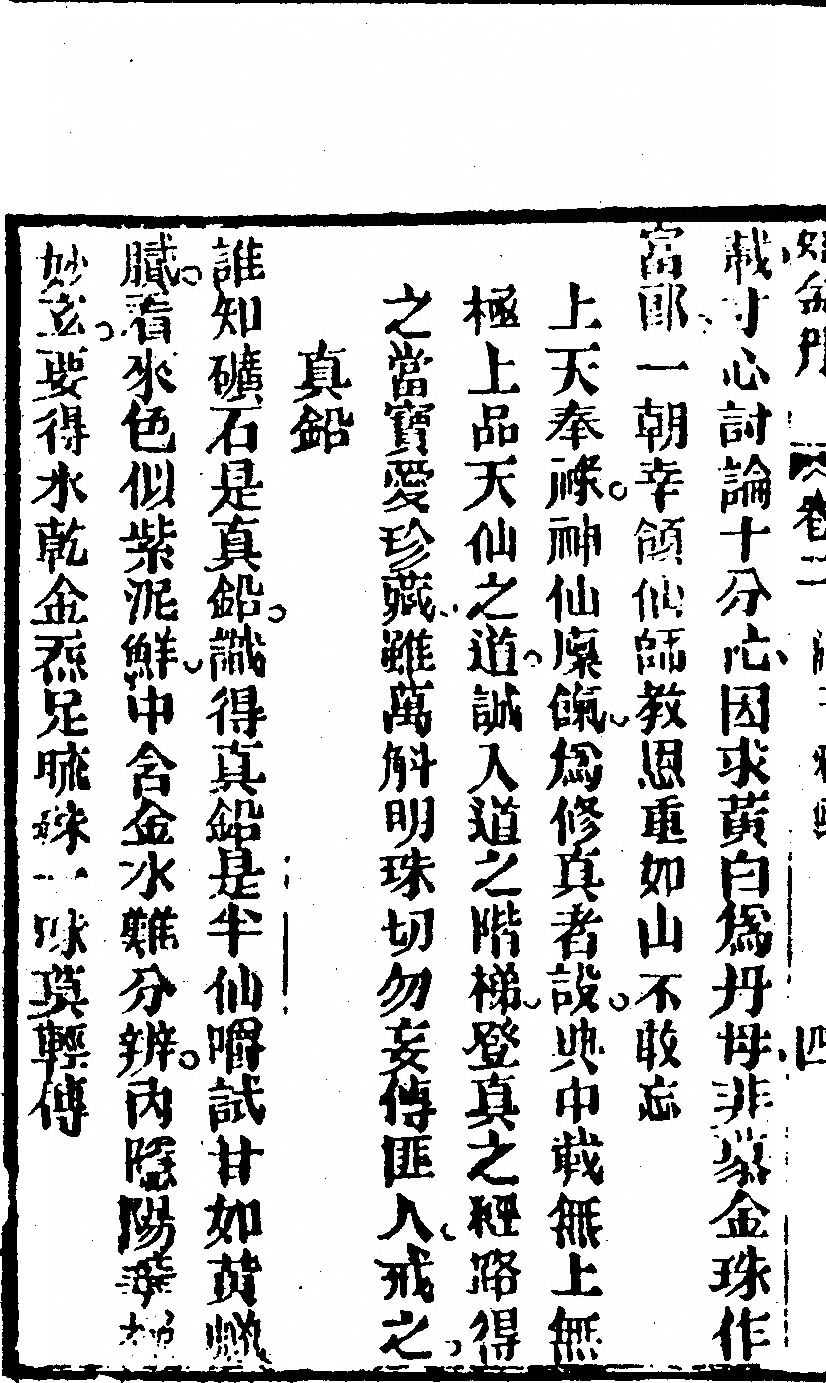 卷二 四
載寸心討論十分心因求黃白爲丹母非慕金珠作
富郎一朝幸領仙師教恩重如山不敢忘
上天奉祿神仙廩餼爲修真者設此中載無上無
極上品天仙之道誠入道之階梯登真之徑路得
之當寶愛珍藏雖萬斛明珠切勿妄傳匪人戒之
真鉛
誰知礦石是真鉛識得真鉛是半仙嚼試甘如黃蠟
膩看來色似紫泥鮮中含金水難分辨內隱陽
妙玄要得水乾金炁足硫珠一味莫輕傳